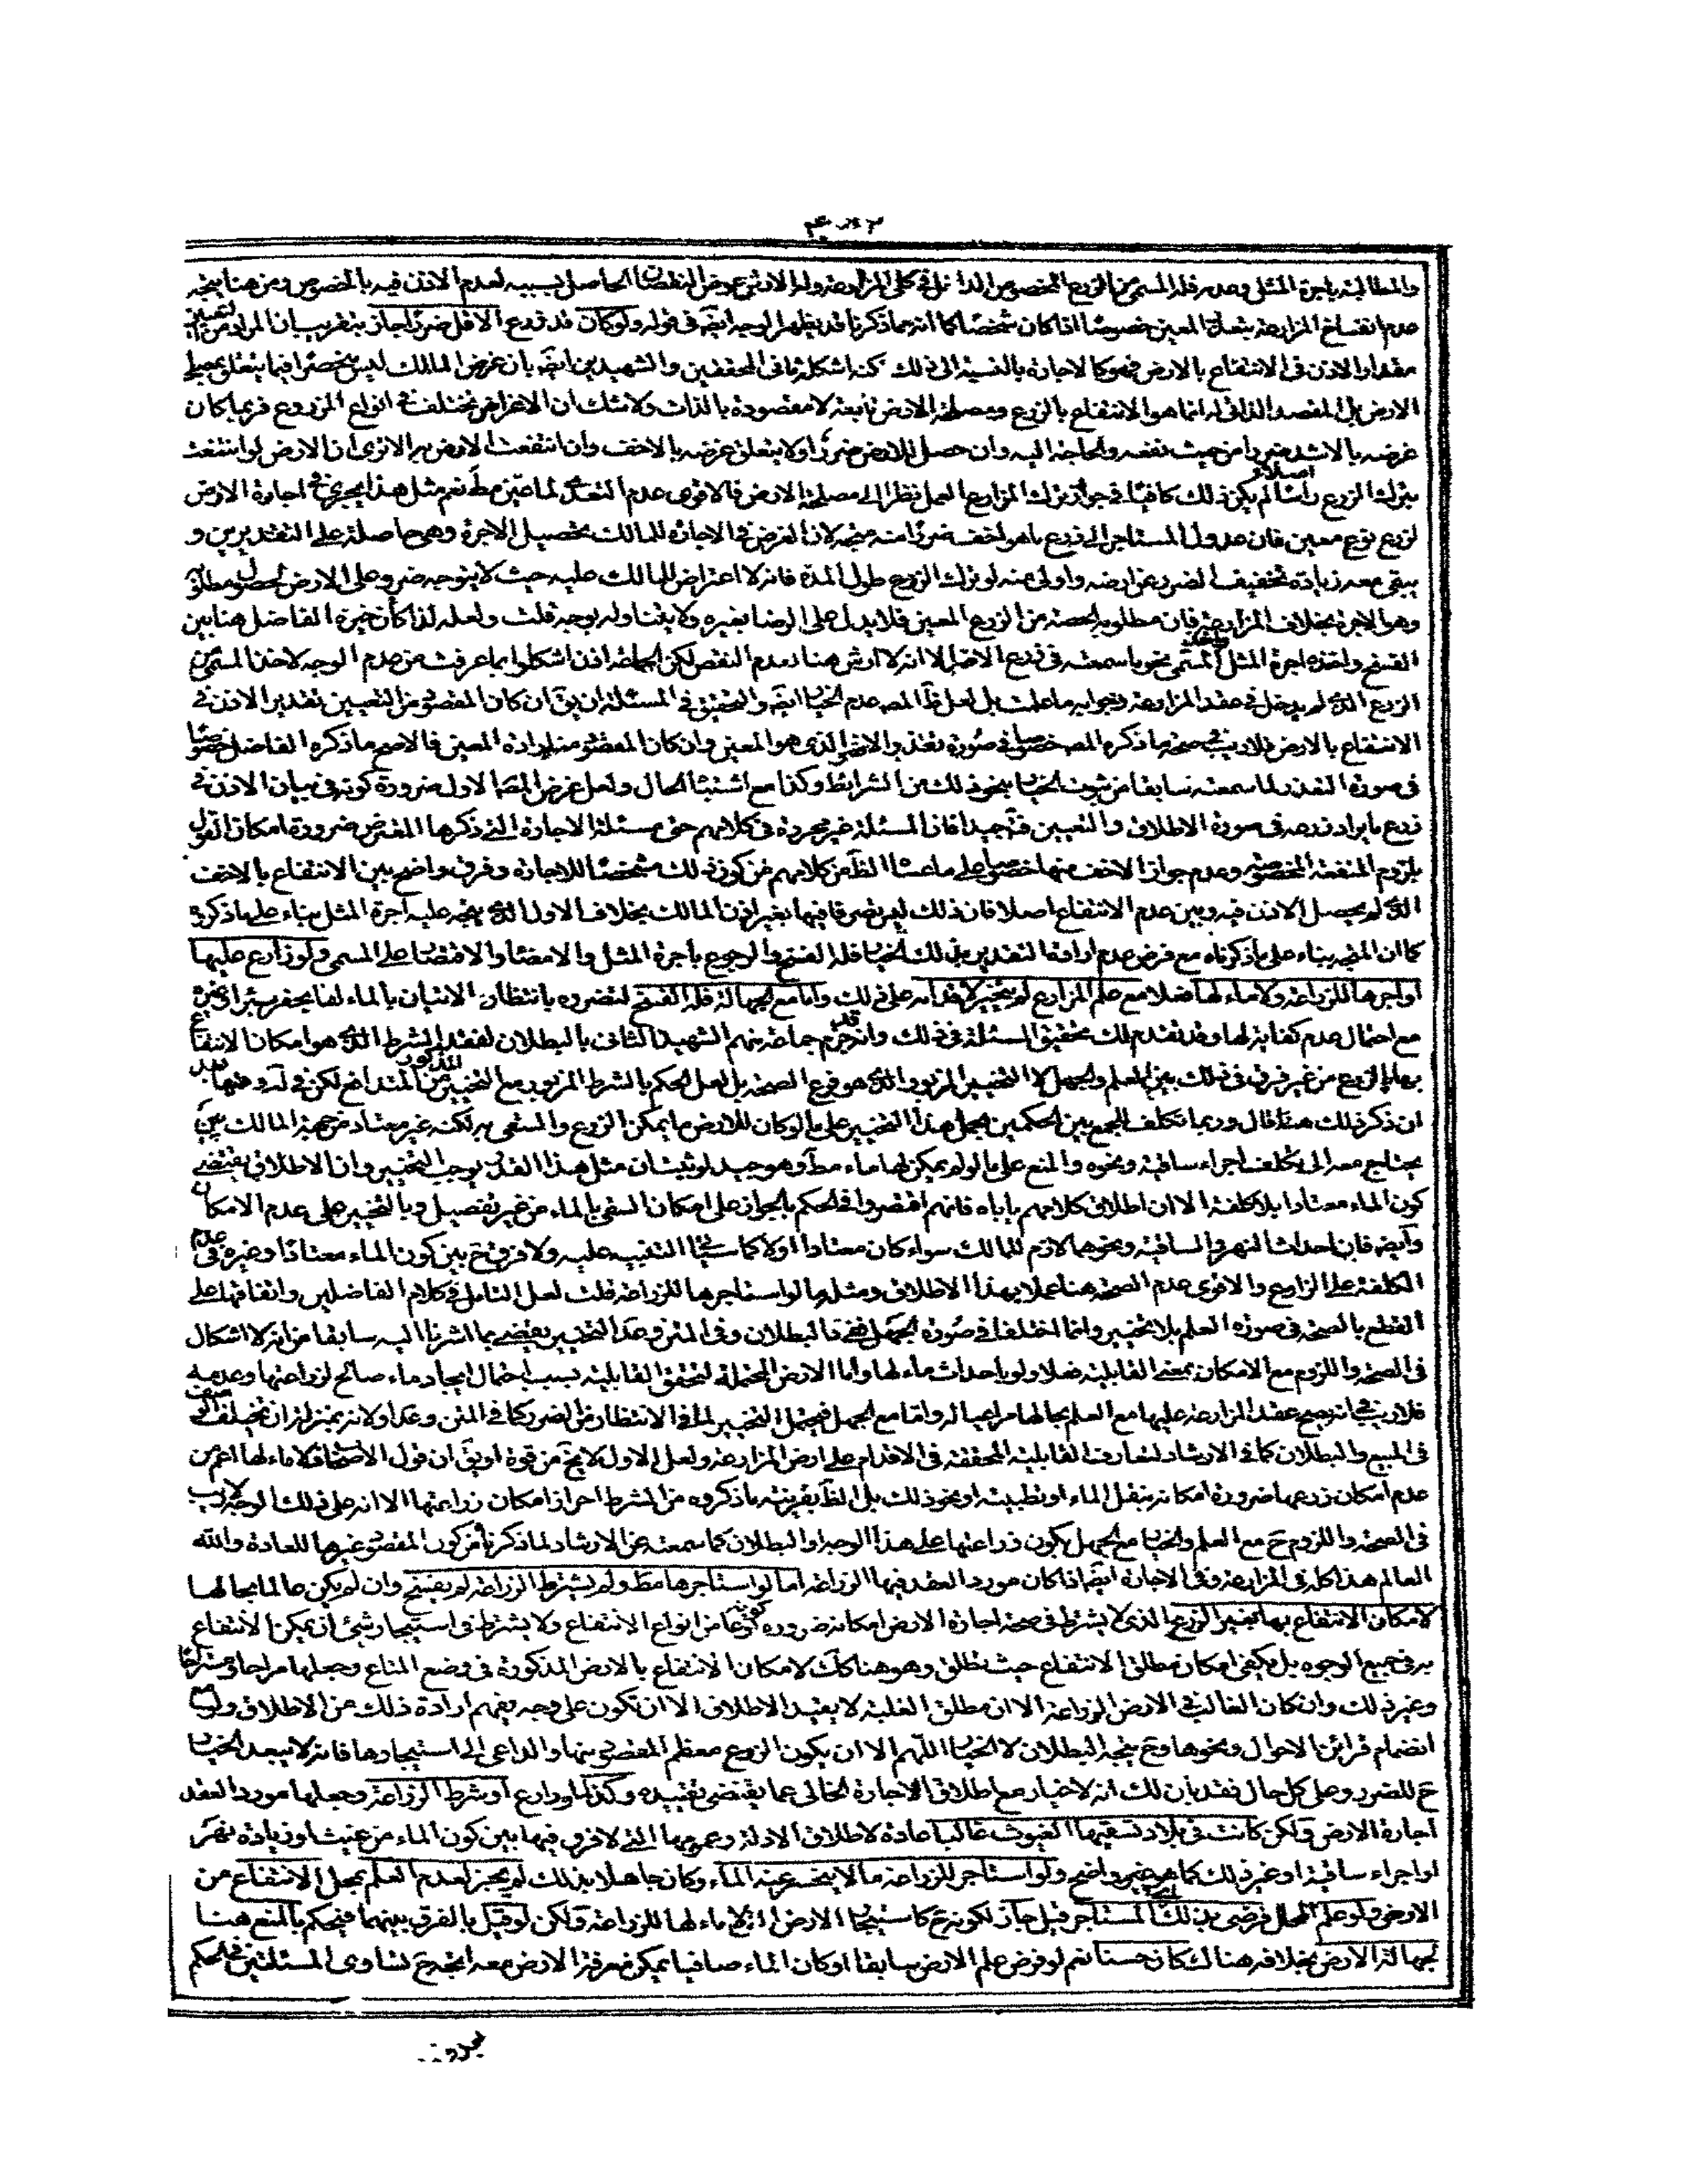 والمطالبة باجرة المثل وعدمه فله المسمى من الزرع المخصوص الداخل في كلى المزارعة وله الارش عوض النقصان الحاصل بسببه لعدم الاذن فيه بالخصوص ومن هنا يتجه
عدم انفساخ المزارعة بتعذر المعين خصوصا اذا كان شخصا كما انه مما ذكرنا قد يظهر الوجه ايضا في قوله ولو كان قد زرع الاقل ضررا جاز بتقريب ان المراد من التعيين
مقدار الاذن في الانتفاع بالارض فهو كالاجارة بالنسبة الى ذلك لكنه اشكله ثاني المحققين والشهيدين ايضا بان غرض المالك ليس منحصرا فيما يتعلق بمصلحة
الارض بل المقصد الذاتي له انما هو الانتفاع بالزرع ومصلحة الارض تابعة لا مقصودة بالذات ولا شك ان الاغراض تختلف في انواع المزروع فربما كان
غرضه بالاشد ضررا من حيث نفعه والحاجة اليه وان حصل للارض ضرر ولا يتعلق غرضه بالاخف وان انتفعت الارض به الا ترى ان الارض لو انتفعت
بترك الزرع رأسا لم يكن ذلك كافيا في جواز ترك المزارع العمل نظرا الى مصلحة الارض فالاقوى عدم التعدى لما عين مط نعم مثل هذا يجري في اجارة الارض
لزرع نوع معين فان عدول المستاجر الى زرع ما هو اخف ضررا منه متجه لان الغرض في الاجارة للمالك تحصيل الاجرة وهي حاصلة على التقديرين و
يبقى معه زيادة تخفيف الضرر عن ارضه واولى منه لو ترك الزرع طول المدة فانه لا اعتراض للمالك عليه حيث لا يتوجه ضرر على الارض لحصول مطلوبه
وهو الاجرة بخلاف المزارعة فان مطلوبه الحصة من الزرع المعين فلا يدل على الرضا بغيره ولا يتناوله بوجه قلت ولعله لذا كان خيرة الفاضل هنا بين
الفسخ واخذه اجرة المثل واخذ المسمى نحو ما سمعته في زرع الاضر الا انه لا ارش هنا لعدم النقص لكن الجماعة اذن اشكلوا بما عرفت من عدم الوجه لاخذ المسمى من
الزرع الذي لم يدخل في عقد المزارعة وجوابه ما علمت بل لعل ظ المصنف عدم الخيار ايضا والتحقيق في المسئلة ان يق ان كان المقصود من التعيين تقدير الاذن في
الانتفاع بالارض فلا ريب في صحة ما ذكره المصنف خصوصا في صورة تعذر الاضر الذي هو المعين وان كان المقصود منه ارادة المعين فالاصح ما ذكره الفاضل خصوصا
في صورة التعذر لما سمعته سابقا من ثبوت الخيار بنحو ذلك من الشرائط وكذا مع اشتباه الحال ولعل غرض المصنف الاول ضرورة كونه في بيان الاذن في
زرع ما يراد زرعه في صورة الاطلاق والتعيين فتأمل جيدا فان المسئلة غير محررة في كلامهم حتى مسئلة الاجارة التي ذكرها المعترض ضرورة امكان القول
بلزوم المنفعة المخصوصة وعدم جواز الاخف منها خصوصا على ما عساه الظ من كلامهم من كون ذلك مشخصا للاجارة وفرق واضح بين الانتفاع بالاخف
الذي لم يحصل الاذن فيه وبين عدم الانتفاع اصلا فان ذلك ليس تصرفا فيها بغير اذن المالك بخلاف الاول الذي يتجه عليه اجرة المثل بناء على ما ذكره
كما ان المتجه بناء على ما ذكرناه مع فرض عدم ارادة التقدير بذلك الخيار فله الفسخ والرجوع باجرة المثل والامضاء والاقتصار على المسمى ولو زارع عليها
او اجرها للزراعة ولا ماء لها اصلا مع علم المزارع لم يتخير لاقدامه على ذلك واما مع الجهالة فله الفسخ لتضرره بانتظار الاتيان بالماء لها بحفر بئر او نحوه
مع احتمال عدم كفايته لها وقد تقدم لك تحقيق المسئلة في ذلك وانه قد جزم جماعة منهم الشهيد الثاني بالبطلان لفقد الشرط الذي هو امكان الانتفاع
بها بالزرع من غير فرق في ذلك بين العلم والجهل لا التخيير المزبور الذي هو فرع الصحة بل لعل الحكم بالشرط المزبور مع التخيير المذكور من المتدافع لكن في لك وغيرها بعد
ان ذكر ذلك هنا قال وربما تكلف الجمع بين الحكمين بحمل هذا التخيير على ما لو كان للارض ما يمكن الزرع والسقى به لكنه غير معتاد من جهة المالك بحيث
يحتاج معه الى تكلف اجراء ساقية ونحوه والمنع على ما لو لم يمكن لها ماء مط وهو جيد لو ثبت ان مثل هذا القدر يوجب التخيير وان الاطلاق يقتضى
كون الماء معتادا بلا كلفة الا ان اطلاق كلامهم ياباه فانهم اقتصروا في الحكم بالجواز على امكان السقى بالماء من غير تفصيل وبالتخيير على عدم الامكان
وايضا فان احداث النهر والساقية ونحوهما لازم للمالك سواء كان معتادا او لا كما سياتي التنبيه عليه ولا فرق ح بين كون الماء معتادا وغيره في عدم
الكلفة على الزارع والاقوى عدم الصحة هنا عملا بهذا الاطلاق ومثله ما لو استاجرها للزراعة قلت لعل التامل في كلام الفاضلين واتفاقهما على
القطع بالصحة في صورة العلم بلا تخيير وانما اختلفا في صورة الجهل ففي د البطلان وفي المتن وعد التخيير يقتضى بما اشرنا اليه سابقا من انه لا اشكال
في الصحة واللزوم مع الامكان بمعنى القابلية فعلا ولو باحداث ماء لها واما الارض المحتملة لتحقق القابلية بسبب احتمال ايجاد ماء صالح لزراعتها وعدمه
فلا ريب في انه يصح عقد المزارعة عليها مع العلم بحالها مراعيا له واما مع الجهل فيحتمل التخيير لما في الانتظار من الضرر كما في المتن وعد اولا لانه بمنزلة ان تخلف الوصف
في المبيع والبطلان كما في الارشاد لتعارف القابلية المحققة في الاقدام على ارض المزارعة ولعل الاول لا يخ من قوة او يق ان قول الاصحاب لا ماء لها اعم من
عدم امكان زرعها ضرورة امكانه بنقل الماء او نطيبته او نحو ذلك بل الظ بقرينة ما ذكروه من الشرط احراز امكان زراعتها الا انه على ذلك الوجه لا ريب
في الصحة واللزوم ح مع العلم والخيار مع الجهل بكون زراعتها على هذا الوجه او البطلان كما سمعته عن الارشاد لما ذكرناه من كون المقصود غيرها للعادة والله
العالم هذا كله في المزارعة وفي الاجارة ايضا اذا كان مورد العقد فيها الزراعة اما لو استاجرها مط ولم يشترط الزراعة لم يفسخ وان لم يكن عالما بحالها
لامكان الانتفاع بها بغير الزرع الذي لا يشترط في صحة اجارة الارض امكانه ضرورة كونه نوعا من انواع الانتفاع ولا يشترط في استيجار شئ ان يمكن الانتفاع
به في جميع الوجوه بل يكفى امكان مطلق الانتفاع حيث يطلق وهو هنا كك لامكان الانتفاع بالارض المذكورة في وضع المتاع وجعلها مراحا ومسرحا
وغير ذلك وان كان الغالب في الارض الزراعة الا ان مطلق الغلبة لا يقيد الاطلاق الا ان تكون على وجه يفهم ارادة ذلك من الاطلاق ولو مع
انضمام قرائن الاحوال ونحوها وح يتجه البطلان لا الخيار اللهم الا ان يكون الزرع معظم المقصود منها والداعى الى استيجارها فانه لا يبعد الخيار
ح للضرر وعلى كل حال فقد بان لك انه لا خيار مع اطلاق الاجارة الخالى عما يقتضى تقييده وكذا لو زارع او شرط الزراعة وجعلها مورد العقد
اجارة الارض ولكن كانت في بلاد تسقيها الغيوث غالبا عادة لاطلاق الادلة وعمومها التي لا فرق فيها بين كون الماء من غيث او زيادة نهر
او اجراء ساقية او غير ذلك كما هو واضح ولو استاجر للزراعة ما لا ينحسر عنه الماء وكان جاهلا بذلك لم يجز لعدم العلم بمحل الانتفاع من
الارض ولو علم المحل فرضى بذلك المستاجر قيل جاز لكونه ح كاستيجار الارض التي لا ماء لها للزراعة ولكن لو قيل بالفرق بينهما فيحكم بالمنع هنا
لجهالة الارض بخلافه هناك كان حسنا نعم لو فرض علم الارض سابقا او كان الماء صافيا يمكن معرفة الارض معه اتجه ح تساوى المسئلتين في الحكم